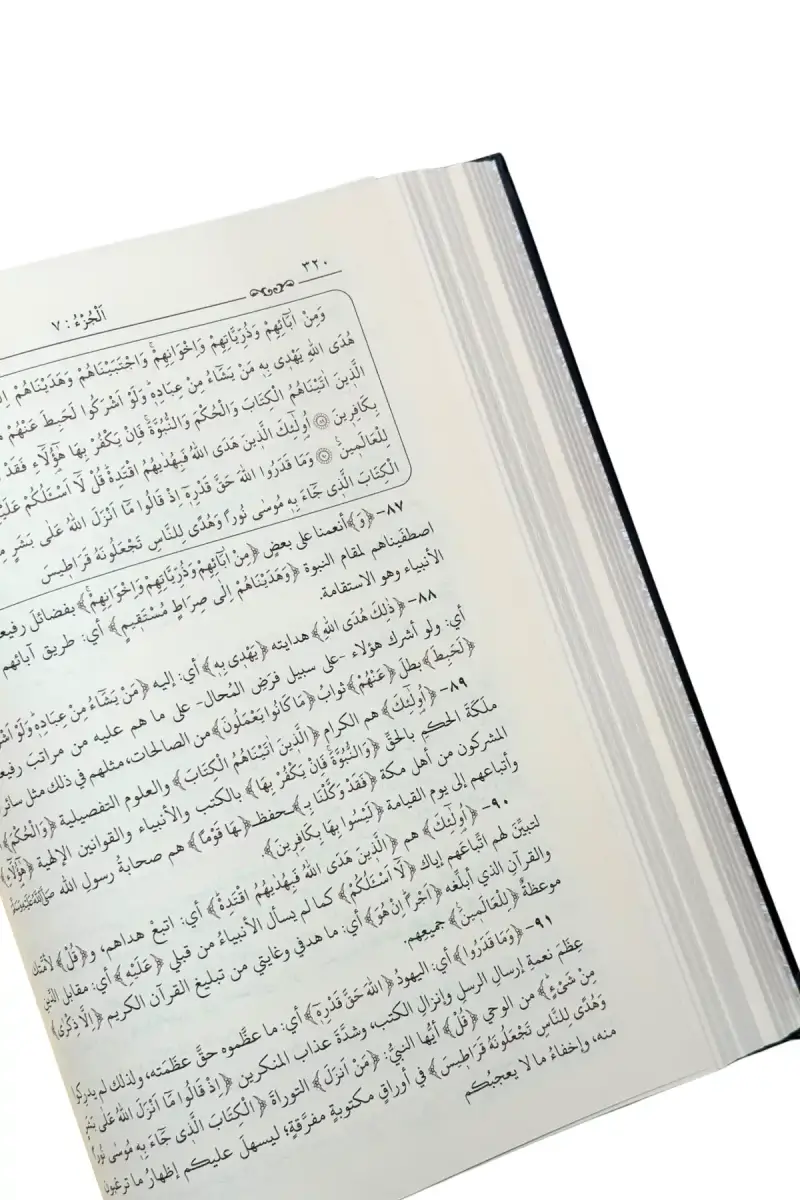 ٣٢٠
اَلْجُزْءُ : ٧
وَمِنْ اٰبَٓائِهِمْ وَذُرِّيَّاتِهِمْ وَاِخْوَانِهِمْۚ وَاجْتَبَيْنَاهُمْ وَهَدَيْنَاهُمْ
هُدَى اللّٰهِ يَهْد۪ي بِه۪ مَنْ يَشَٓاءُ مِنْ عِبَادِه۪ۜ وَلَوْ اَشْرَكُوا لَحَبِطَ عَنْهُمْ
الَّذ۪ينَ اٰتَيْنَاهُمُ الْكِتَابَ وَالْحُكْمَ وَالنُّبُوَّةَۚ فَاِنْ يَكْفُرْ بِهَا هٰٓؤُ۬لَٓاءِ فَقَدْ
بِكَافِر۪ينَ ﴿٨٩﴾ اُو۬لٰٓئِكَ الَّذ۪ينَ هَدَى اللّٰهُ فَبِهُدٰيهُمُ اقْتَدِهْۜ قُلْ لَٓا اَسْـَٔلُكُمْ عَلَيْهِ
لِلْعَالَم۪ينَ۟ ﴿٩٠﴾ وَمَا قَدَرُوا اللّٰهَ حَقَّ قَدْرِه۪ٓ اِذْ قَالُوا مَٓا اَنْزَلَ اللّٰهُ عَلٰى بَشَرٍ
الْكِتَابَ الَّذ۪ي جَٓاءَ بِه۪ مُوسٰى نُوراً وَهُدًى لِلنَّاسِ تَجْعَلُونَهُ قَرَاط۪يسَ
٨٧- ﴿وَ﴾ أنعمنا على بعضٍ ﴿مِنْ اٰبَٓائِهِمْ وَذُرِّيَّاتِهِمْ وَاِخْوَانِهِمْۚ﴾ بفضائلَ
اصطفَيناهم لمقام النبوة ﴿وَهَدَيْنَاهُمْ اِلٰى صِرَاطٍ مُسْتَق۪يمٍ﴾ أي: طريق آبائهم
الأنبياء وهو الاستقامة.
٨٨- ﴿ذٰلِكَ هُدَى اللّٰهِ﴾ هدايته ﴿يَهْد۪ي بِه۪﴾ أي: إليه ﴿مَنْ يَشَٓاءُ مِنْ عِبَادِه۪ۜ وَلَوْ
أي: ولو أشرك هؤلاء -على سبيل فرَضِ المُحال- على ما هم عليه من مراتبَ
﴿لَحَبِطَ﴾ بطلَ ﴿عَنْهُمْ﴾ ثوابُ ﴿مَا كَانُوا يَعْمَلُونَ﴾ من الصالحات، مثلهم في ذلك مثل سائر
٨٩- ﴿اُو۬لٰٓئِكَ﴾ هم الكرام ﴿الَّذ۪ينَ اٰتَيْنَاهُمُ الْكِتَابَ﴾ والعلوم التفصيلية ﴿وَالْحُكْمَ﴾
ملَكةَ الحكمِ بالحقِّ ﴿وَالنُّبُوَّةَۚ فَاِنْ يَكْفُرْ بِهَا﴾ بالكتب والأنبياء والقوانين الإلهية ﴿هٰٓؤُ۬لَٓاءِ﴾
المشركون من أهل مكة ﴿فَقَدْ وَكَّلْنَا بِـ﴾ـحفظ ﴿ـهَا قَوْماً﴾ هم صحابةُ رسول الله ﷺ
وأتباعهم إلى يوم القيامة ﴿لَيْسُوا بِهَا بِكَافِر۪ينَ﴾.
٩٠- ﴿اُو۬لٰٓئِكَ﴾ هم ﴿الَّذ۪ينَ هَدَى اللّٰهُ فَبِهُدٰيهُمُ اقْتَدِهْۜ﴾ أي: اتبعْ هداهم، و﴿قُلْ﴾ لأمتك
لتبيِّنَ لهم اتّباعَهم إياك ﴿لَٓا اَسْـَٔلُكُمْ﴾ كما لم يسأل الأنبياءُ من قبلي ﴿عَلَيْهِ﴾ أي: مقابل
والقرآنِ الذي أبلّغه ﴿اَجْراًۜ اِنْ هُوَ﴾ أي: ما هدفي وغايتي من تبليغ القرآن الكريم ﴿اِلَّا ذِكْرٰى﴾
موعظةٌ ﴿لِلْعَالَم۪ينَ۟﴾ جميعِهم.
٩١- ﴿وَمَا قَدَرُوا﴾ أي: اليهودُ ﴿اللّٰهَ حَقَّ قَدْرِه۪ٓ﴾ أي: ما عظَّموه حقَّ عظَمَته، ولذلك لم يدركوا
عِظَم نعمةِ إرسالِ الرسلِ وإنزالِ الكتب، وشدَّةَ عذاب المنكرين ﴿اِذْ قَالُوا مَٓا اَنْزَلَ اللّٰهُ عَلٰى بَشَرٍ
مِنْ شَيْءٍۜ﴾ من الوحي ﴿قُلْ﴾ أيها النبيُّ: ﴿مَنْ اَنْزَلَ﴾ التوراةَ ﴿الْكِتَابَ الَّذ۪ي جَٓاءَ بِه۪ مُوسٰى نُوراً
وَهُدًى لِلنَّاسِ تَجْعَلُونَهُ قَرَاط۪يسَ﴾ في أوراقٍ مكتوبةٍ مفرَّقةٍ؛ ليسهلَ عليكم إظهارُ ما ترغبون
منه، وإخفاءُ ما لا يعجبُكم